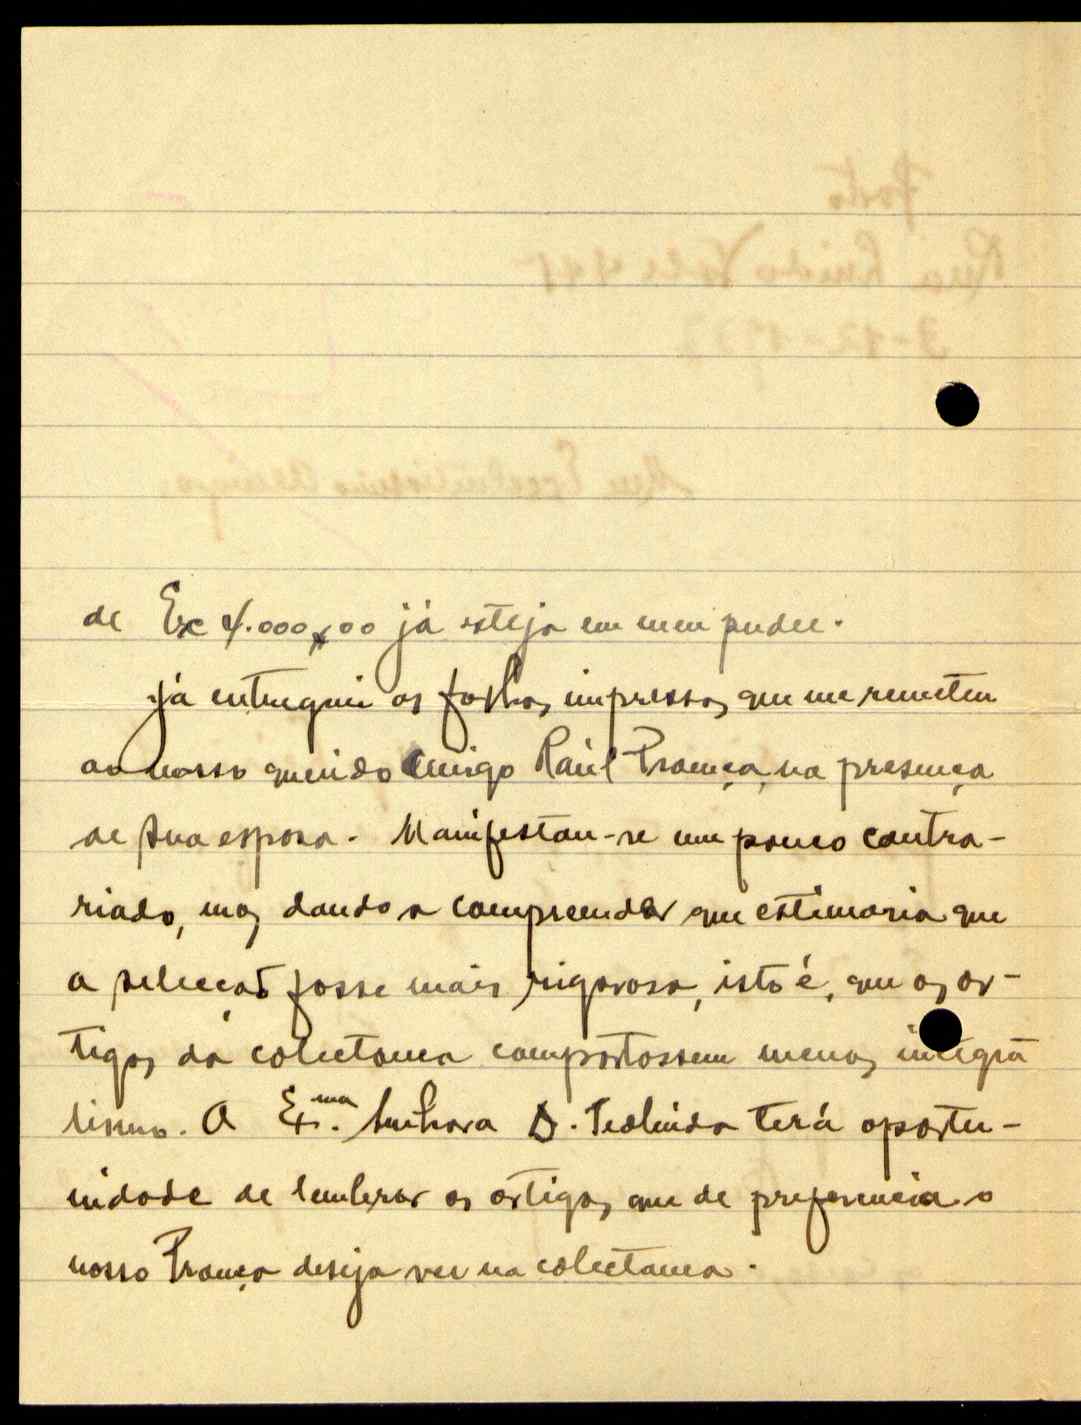 de Esc 4.000$00 já esteja em meu poder.
Já entreguei as folhas impressas que me remeteu
ao nosso querido Amigo Raúl Proença, na presença
de sua esposa. Manifestou-se um pouco contra-
riado, mas dando a compreender que estimaria que
a selecção fosse mais rigorosa, isto é, que os ar-
tigos da colectanea comportassem menos integra
lismo. A Ex.ma Senhora D. Teolinda terá oportu-
nidade de lembrar os artigos que de preferencia o
nosso Proença deseja ver na colectanea.